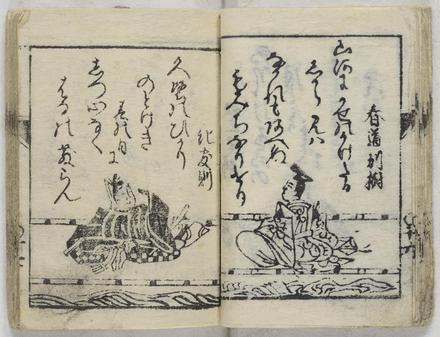 春道列樹
山河に風のかけたる
しからみは
なかれもあへぬ
もみちなりけり
紀友則
久堅のひかり
のとけき
春の日に
しつ心なく
はなの散らん